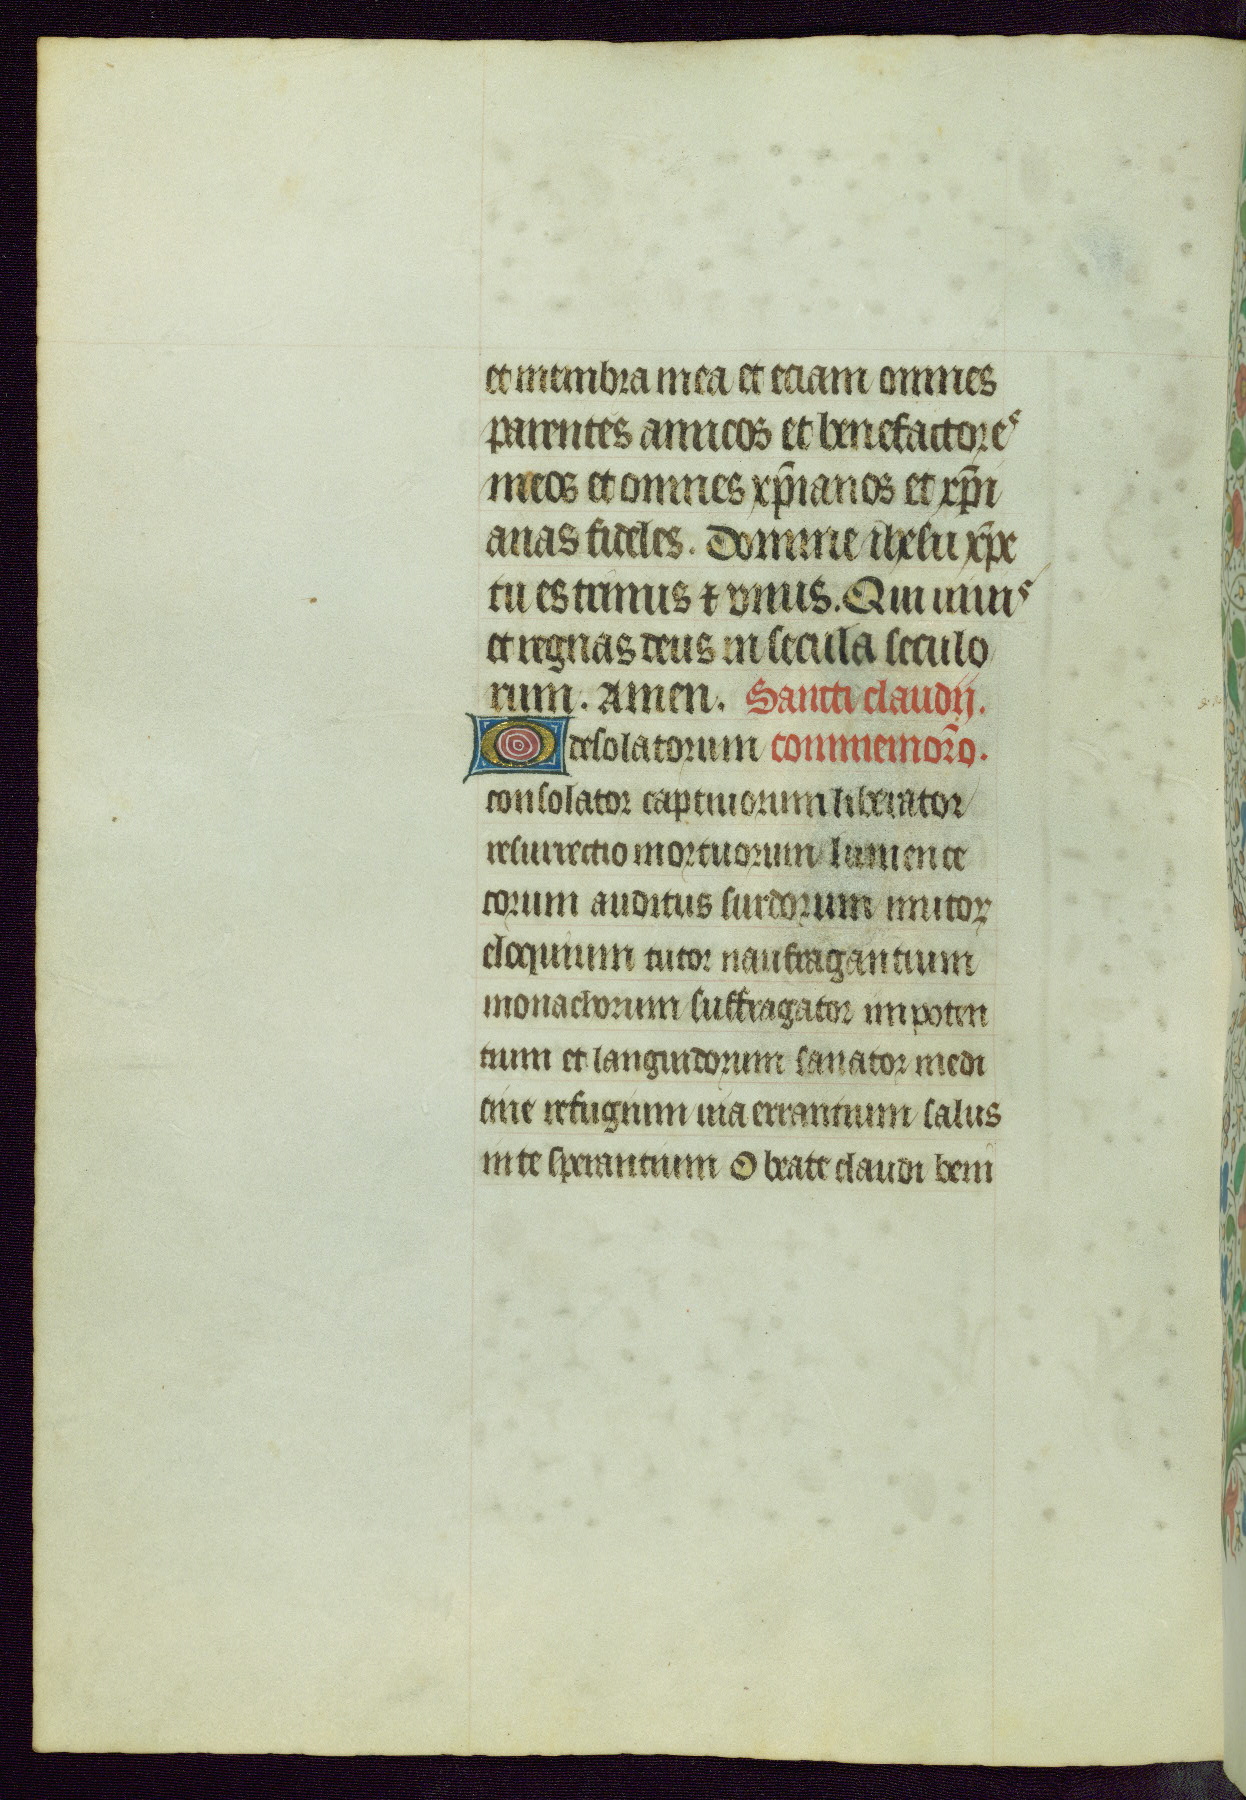 et membra mea et eciam omnes
parentes amicos et benefactores
meos et omnes xp̃ianos et xp̃i
anas fideles. Domine ihesu xp̃e
tu es trinus ⁊ vnus. Qui uiuis
et regnas deus in secula seculo
rum. Amen. Sancti claudij.
O desolatorum commemorõ.
consolator captiuorum liberator
resurrectio mortuorum lumen ce
corum auditus surdorum mutoꝝ
eloquium tutor naufragantium
monachorum suffragator impoten
tium et languidorum sanator medi
cine refugium uia errantium salus
in te sperantium O beate claudi beni